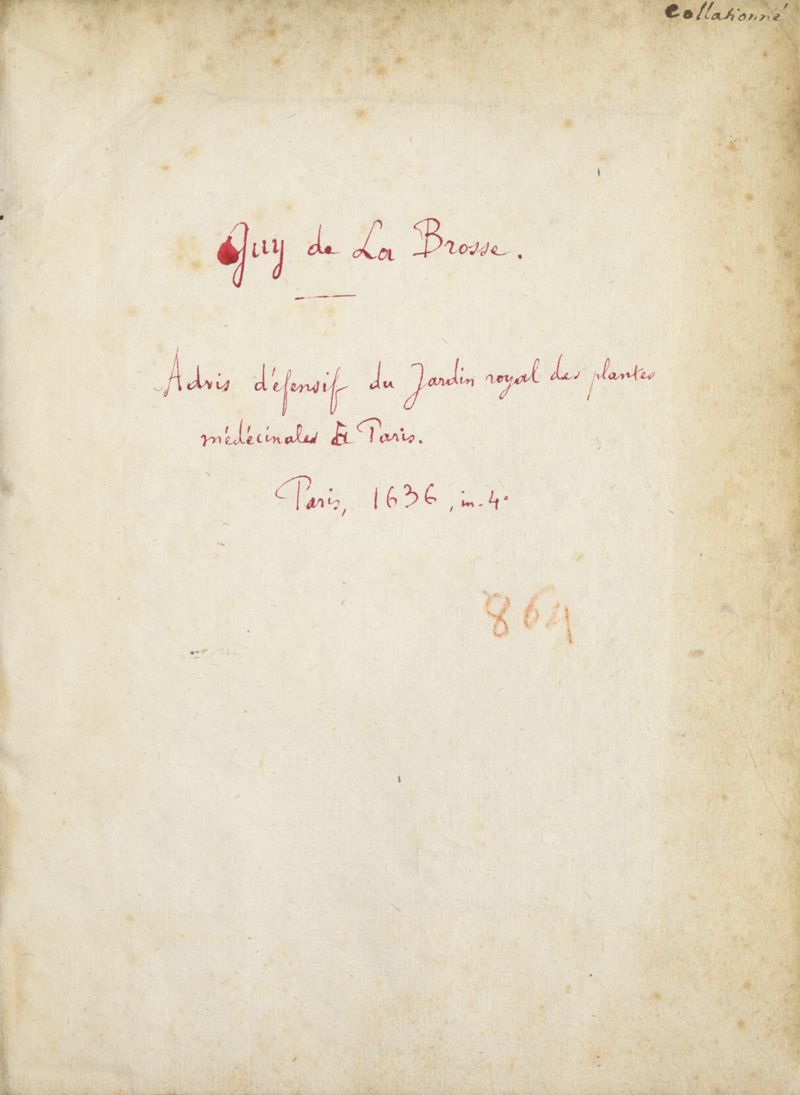 Collationné
Guy de La Brosse.
Advis défensif du Jardin royal des plantes
médécinales à Paris.
Paris, 1636, in-4°
864